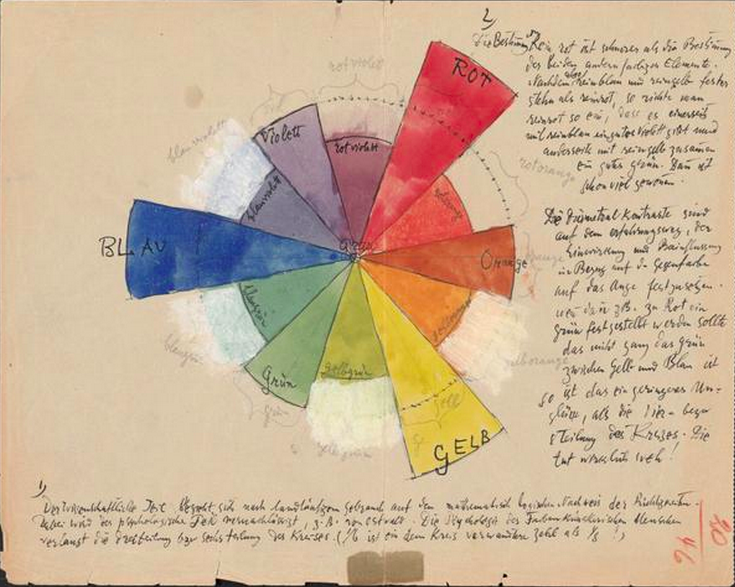 2)
Die Bestimmung von Rein rot ist schwerer als die Bestimmung
der beiden andern farbigen Elemente.
Nachdem aber reinblau und reingelb fester
stehn als reinrot, so richte man
reinrot so ein, dass es einerseits
mit reinblau ein gutes violett gibt und
anderseits mit reingelb zusammen
ein gutes grün. Dann ist
schon viel gewonnen.
Die Diametral Kontraste sind
auf dem erfahrungsweg, der
Einwirkung und Beeinflussung
in Bezug auf die Gegenfarbe
auf das Auge festzusetzen.
wenn dann z.B. zu Rot ein
grün festgestellt werden sollte
das nicht ganz das grün
zwischen Gelb und Blau ist
so ist das ein geringeres Un-
glück, als die
teilung des Kreises. Die
tut wirklich weh!
rotviolett
ROT
violett
rotviolett
blauviolett
blauviolett
rotorange
BLAU
Grau
Orange
orange
blaugrün
blaugrün
gelborange
Grün
gelbgrün
gelb
grün
gelbgrün
GELB
1)
Der wissenschaftliche Teil bezieht sich nach landläufigem gebrauch auf den mathematisch logischen Nachweis der Richtigkeiten.
Dabei wird der psychologische Teil vernachlässigt, z.B. von Ostwald. Die Psychologie des Farbenkünstlerischen Menschen
verlangt die dreiteilung bzw sechsteilung des Kreises. (1/6 ist ein dem Kreis verwandtere zahl als 1/8 !)